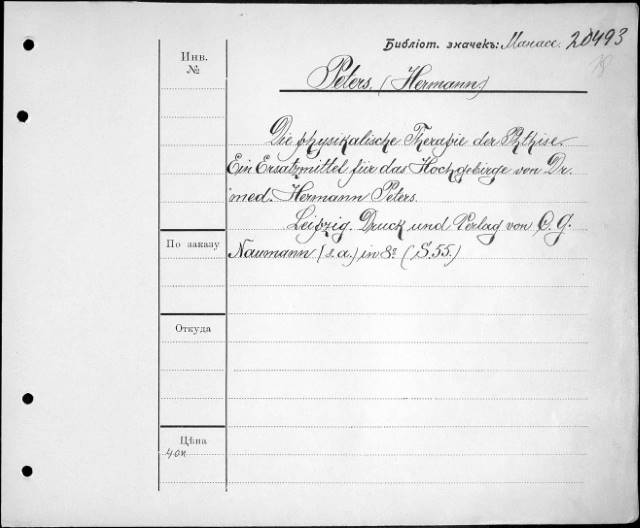 Библіот. значекъ: Манасс. 20493
18
Инв.
№
Peters. (Hermann)
Die physikalische Therapie der Phthise.
Ein Ersatzmittel für das Hochgebirge von Dr.
med. Hermann Peters.
Leipzig. Druck und Verlag von C. G.
Naumann. [s. a.) in 8º (S. 55.)
По заказу
Откуда
Цѣна
40к